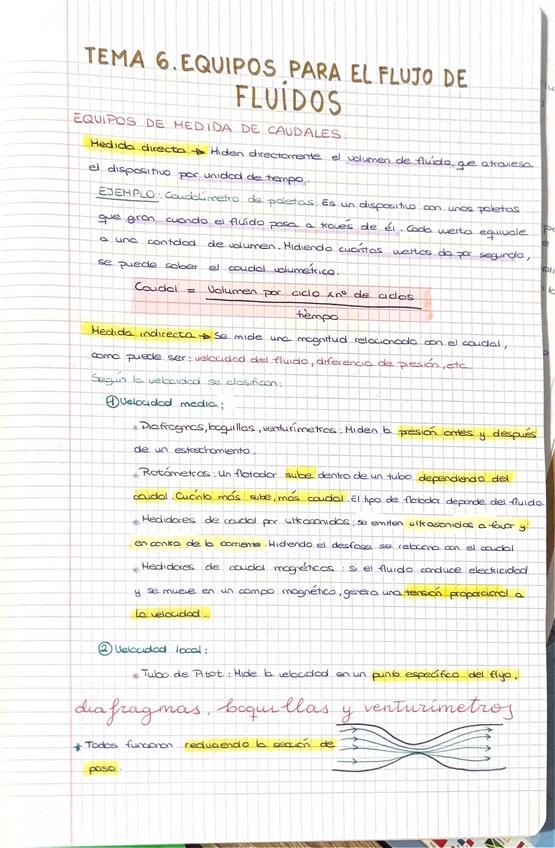 TEMA 6. EQUIPOS PARA EL FLUJO DE
FLUÍDOS
EQUIPOS DE MEDIDA DE CAUDALES
Medida directa → Miden directamente el volumen de fluído, que atraviesa
el dispositivo por unidad de tiempo.
EJEMPLO: Caudalímetro de paletas: Es un dispositivo con unas paletas
que giran cuando el fluído pasa a través de él. Cada vuelta equivale
a una cantidad de volumen. Midiendo cuántas vueltas da por segundo,
se puede saber el caudal volumétrico.
Caudal = Volumen por ciclo x nº de ciclos
tiempo
Medida indirecta → Se mide una magnitud relacionada con el caudal,
como puede ser: velocidad del fluído, diferencia de presión, etc.
Según la velocidad se clasifican:
① Velocidad media:
Diafragmas, boquillas, venturímetros: Miden la presión antes y después
de un estrechamiento.
Rotámetros: Un flotador sube dentro de un tubo dependiendo del
caudal. Cuánto más sube, más caudal. El tipo de flotador depende del fluído.
Medidores de caudal por ultrasonidos: se emiten ultrasonidos a favor y
en contra de la corriente. Midiendo el desfase se relaciona con el caudal
Medidores de caudal magnéticos: si el fluído conduce electricidad
y se mueve en un campo magnético, genera una tensión proporcional a
la velocidad.
② Velocidad local:
Tubo de Pitot: Mide la velocidad en un punto específico del flujo.
diafragmas, boquillas y venturímetros
* Todos funcionan reduciendo la sección de
paso.